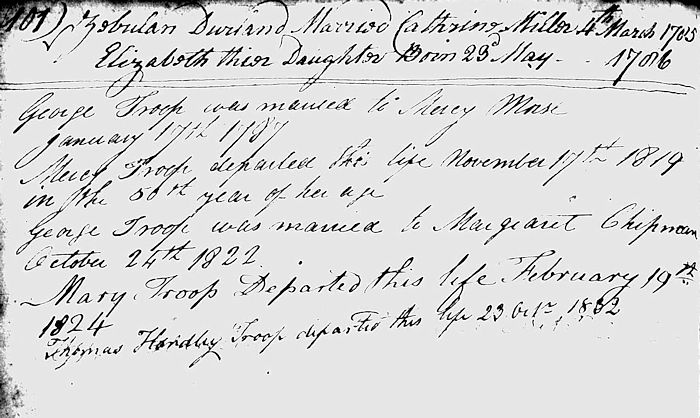 101) Zebulan Durland Married Cathrine Miller 4th March 1785
Elizabeth thier Daughter Born 23d May - 1786
George Troop was married to Mercy Morse
January 17th 1787
Mercy Troop departed this life November 17th 1819
in the 50th year of her age
George Troop was married to Margearet Chipman
October 24th 1822
Mary Troop Departed this life February 19th
1824
Thomas Handley Troop departed this life 23 Octr 1832